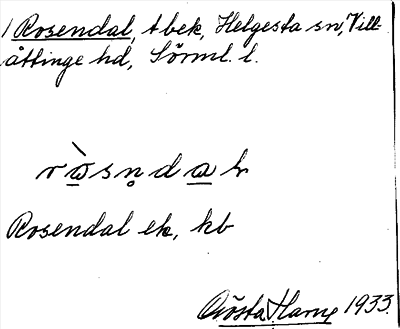 1 Rosendal, t bek, Helgesta sn, Vill-
åttinge hd, Sörml. l.
Rosendal ek, kb
Gösta Harry 1933.